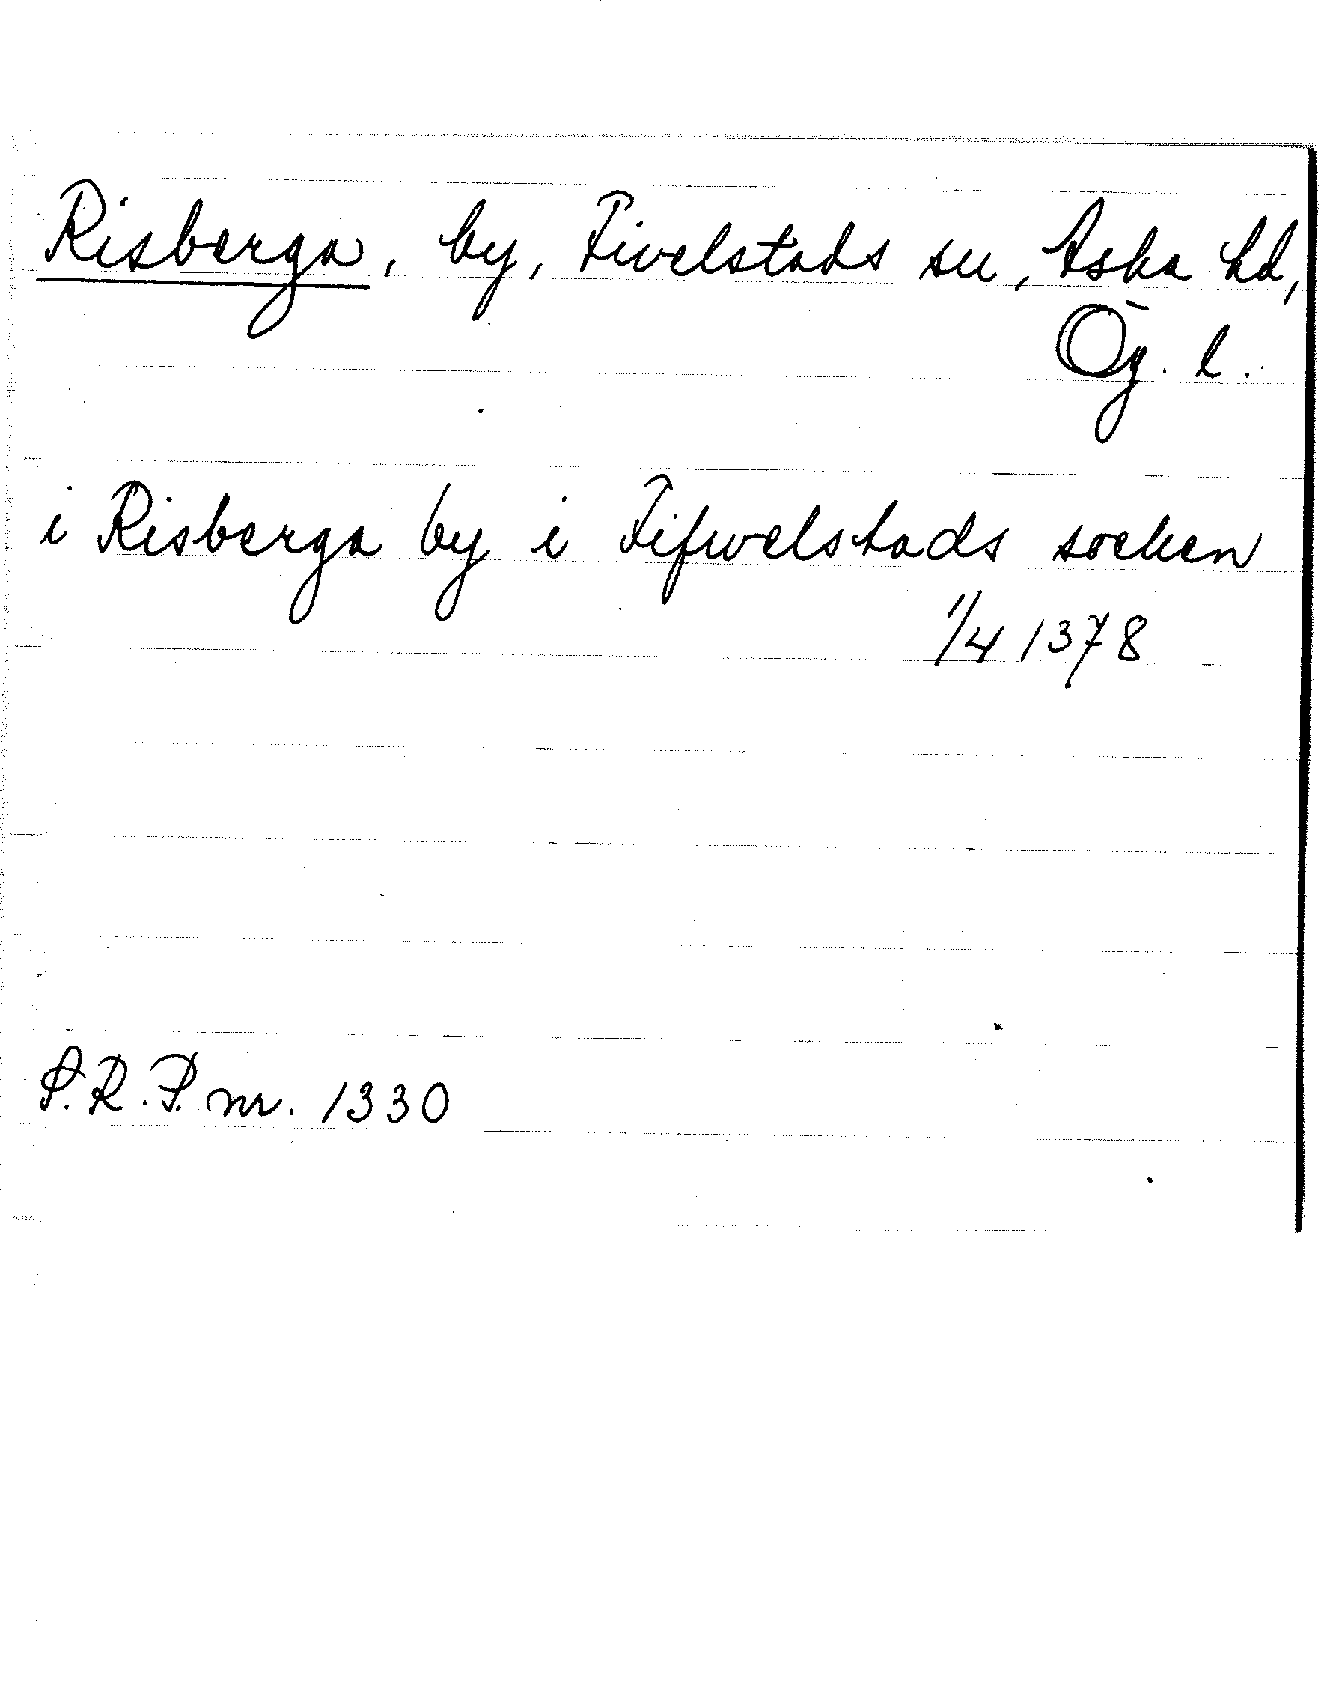 Risberga, by, Fivelstads sn, Aska hd,
Ög. l.
i Risberga by i Fifwelstads socken
1/4 1378
S.R.P. nr. 1330